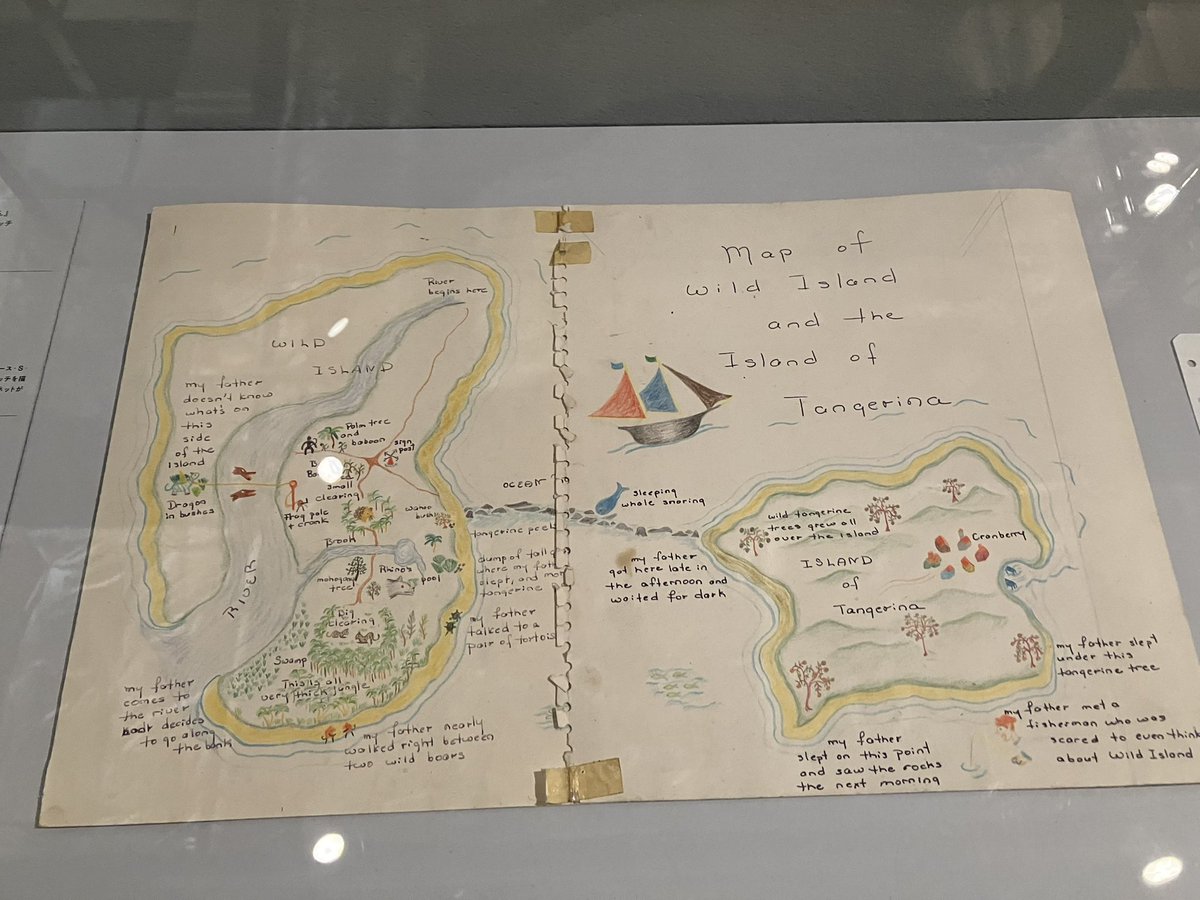 Map of
Wild Island
and the
Island of
Tangerina
River
begins here
WILD
ISLAND
my father
doesn't know
what's on
this
side
of the
Island
Dragon
in bushes
Palm tree
and
baboon
sign
post
small
clearing
flag pole
+ crank
Brook
mohogany
tree
Rhino's
pool
RIVER
Big
clearing
Swamp
This is all
very thick jungle
my father
comes to
the river
and decides
to go along
the bank
my father nearly
walked right between
two wild boars
OCEAN
tangerine peel
where my
slept, and
tangerine
my father
talked to a
pair of tortois
sleeping
whale snoring
my father
got here late in
the afternoon and
waited for dark
wild tangerine
trees grew all
over the island
ISLAND
of
Tangerina
Cranberry
my father slept
under this
tangerine tree
my father met a
fisherman who was
scared to even think
about Wild Island
my father
slept on this point
and saw the rocks
the next morning